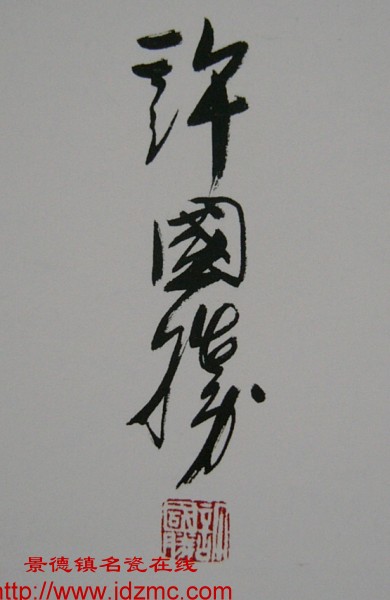 許
國
勝
許國勝
景德镇名瓷在线
http://www.jdzmc.com